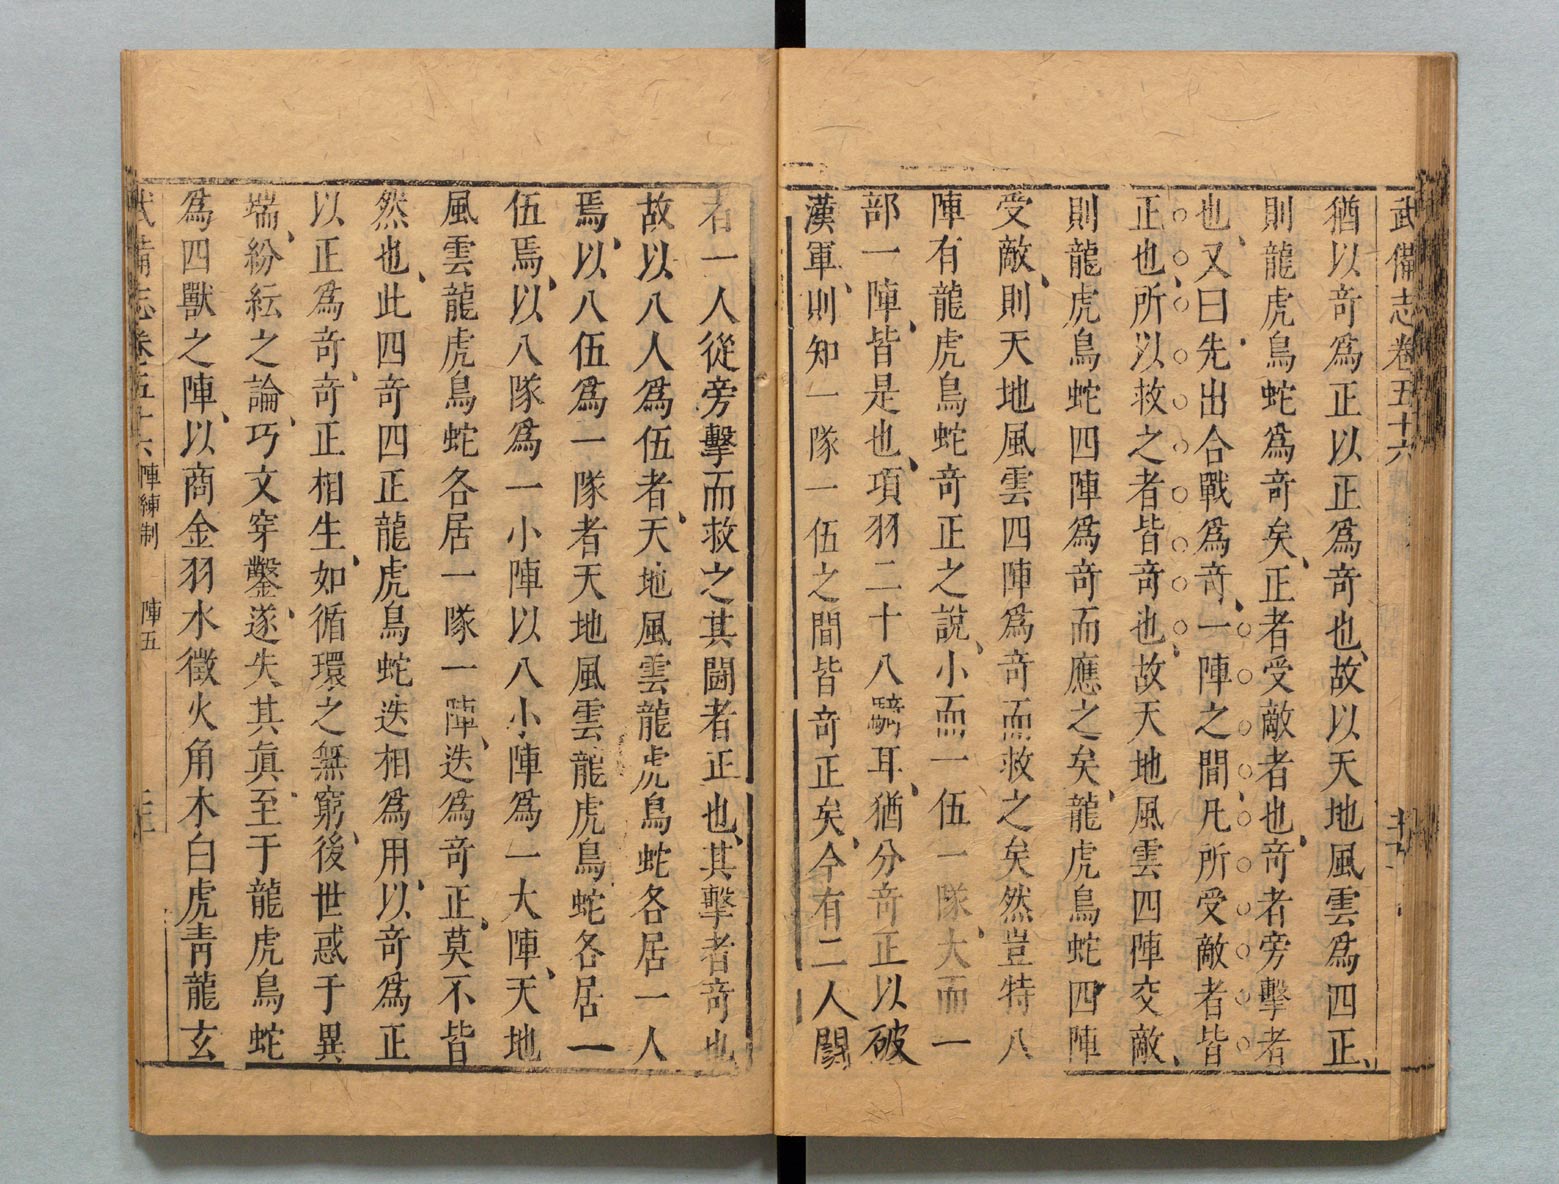 武備志卷五十六
猶以竒爲正以正爲竒也、故以天地風雲爲四正、
則龍虎鳥蛇爲竒矣、正者受敵者也、竒者旁擊者
也、又曰先出合戰爲竒、一陣之間、凡所受敵者皆
正也、所以救之者皆竒也、故天地風雲四陣交敵、
則龍虎鳥蛇四陣爲竒而應之矣、龍虎鳥蛇四陣
受敵、則天地風雲四陣爲竒而救之矣然豈特八
陣有龍虎鳥蛇竒正之說、小而一伍一隊、大而一
部一陣、皆是也、項羽二十八騎耳、猶分竒正以破
漢軍、則知一隊一伍之間皆竒正矣、今有二人鬪
者一人從旁擊而救之其鬪者正也、其擊者竒也
故以八人爲伍者、天地風雲龍虎鳥蛇各居一人
焉、以八伍爲一隊者天地風雲龍虎鳥蛇各居一
伍焉、以八隊爲一小陣以八小陣爲一大陣、天地
風雲龍虎鳥蛇各居一隊一陣、迭爲竒正、莫不皆
然也、此四竒四正龍虎鳥蛇迭相爲用、以竒爲正
以正爲竒、竒正相生、如循環之無窮、後世惑于異
端、紛紜之論、巧文穿鑿、遂失其眞、至于龍虎鳥蛇
爲四獸之陣、以商金羽水徵火角木白虎靑龍玄
武備志卷五十六 陣練制 陣五